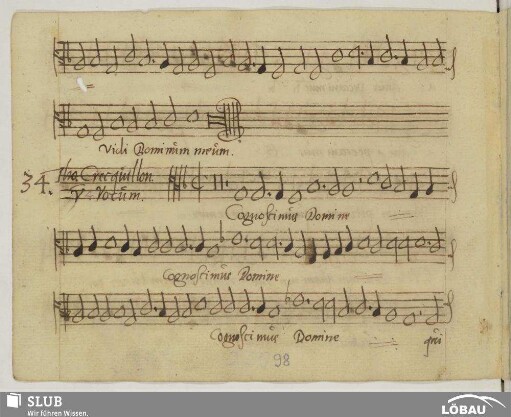 Vidi Dominum meum.
34. Tho. Crecquillon.
Vocum.
Cognoscimus Domine
Cognoscimus Domine
Cognoscimus Domine
98
SLUB
Wir führen Wissen.
LÖBAU